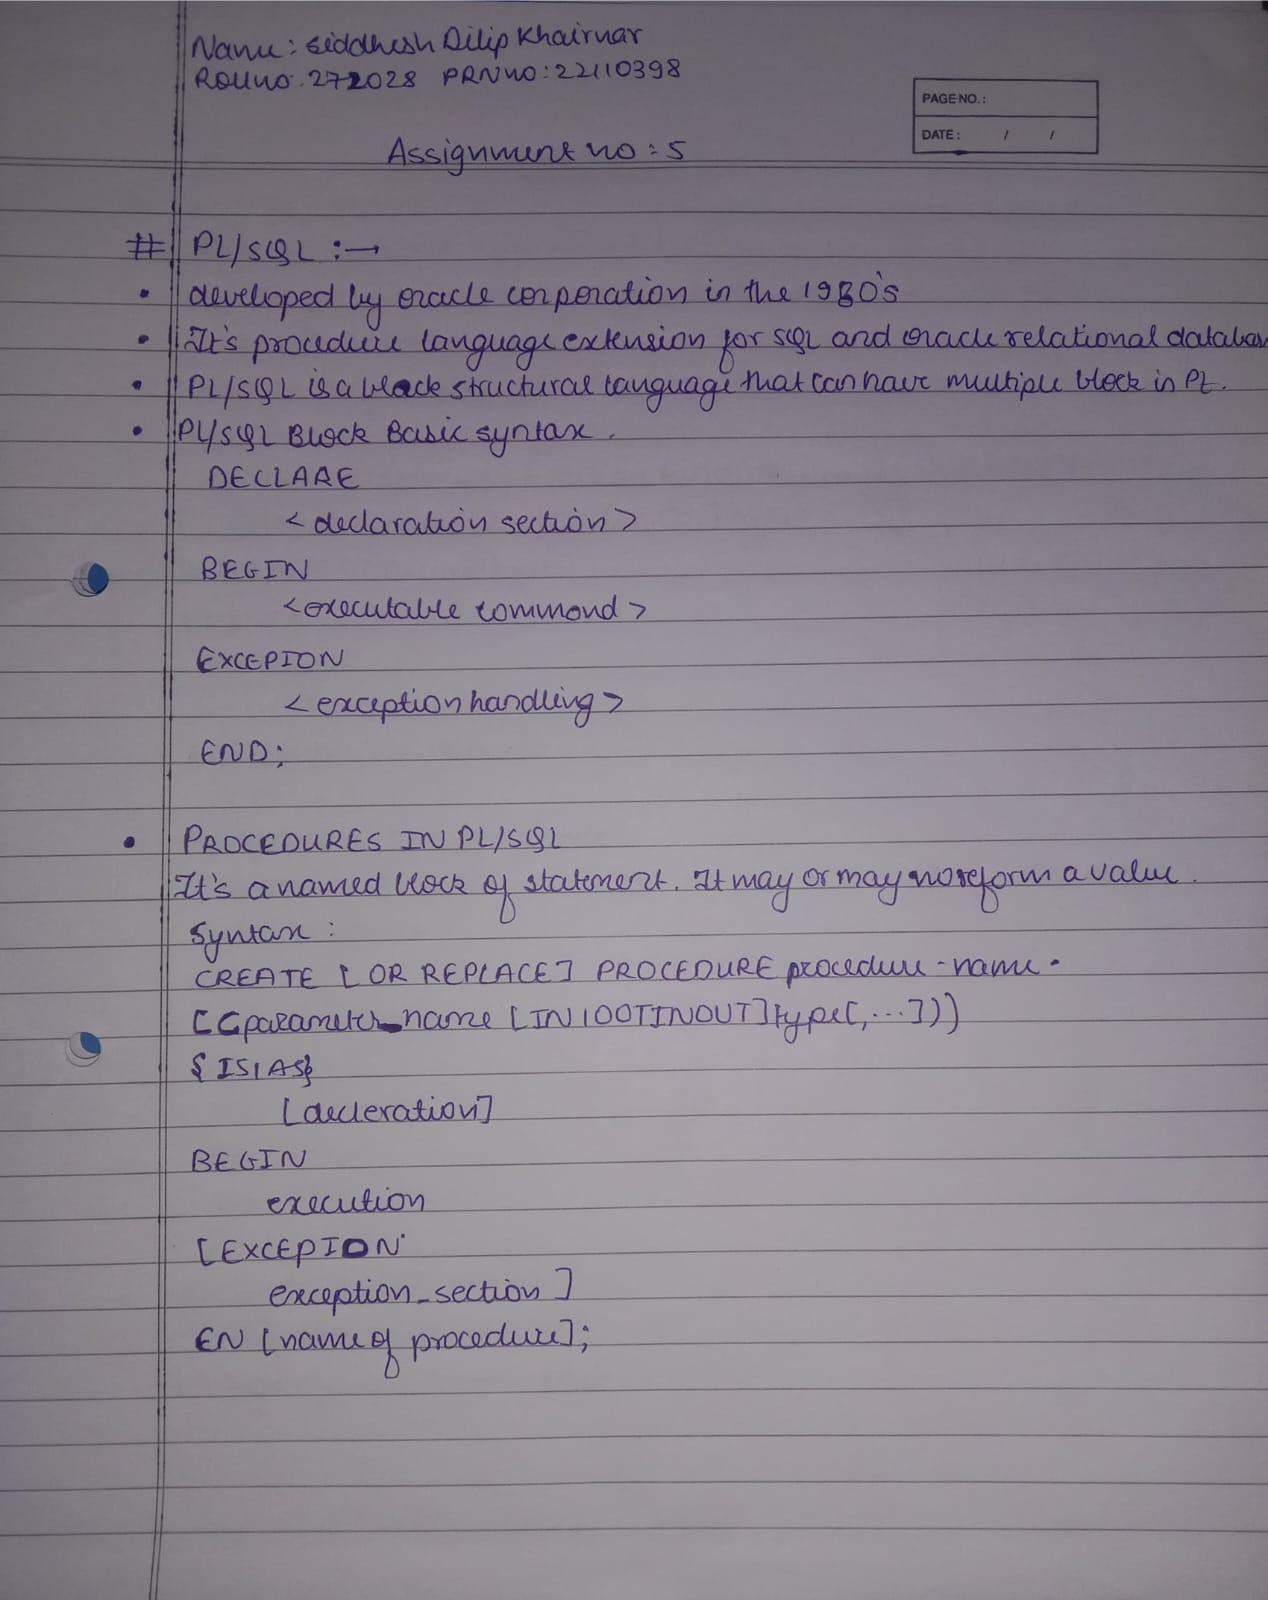 Name: Siddhesh Dilip Khairnar
Roll no. 272028 PRN no: 22110398
PAGE NO.:
DATE: / /
Assignment no: 5
# PL/SQL :→
• developed by oracle corporation in the 1980's
• It's procedure language extension for SQL and oracle relational databas
• PL/SQL is a block structural language that can have multiple block in PL.
• PL/SQL Block Basic syntax.
DECLARE
<declaration section>
BEGIN
<executable command>
EXCEPION
<exception handling>
END;
• PROCEDURES IN PL/SQL
It's a named block of statement. It may or may no reform a value.
Syntax:
CREATE [OR REPLACE] PROCEDURE procedure-name.
[(parameter_name [IN|OOTINOUT] type[,...]))
{IS|AS}
[decleration]
BEGIN
execution
[EXCEPION
exception_section]
EN [name of procedure];